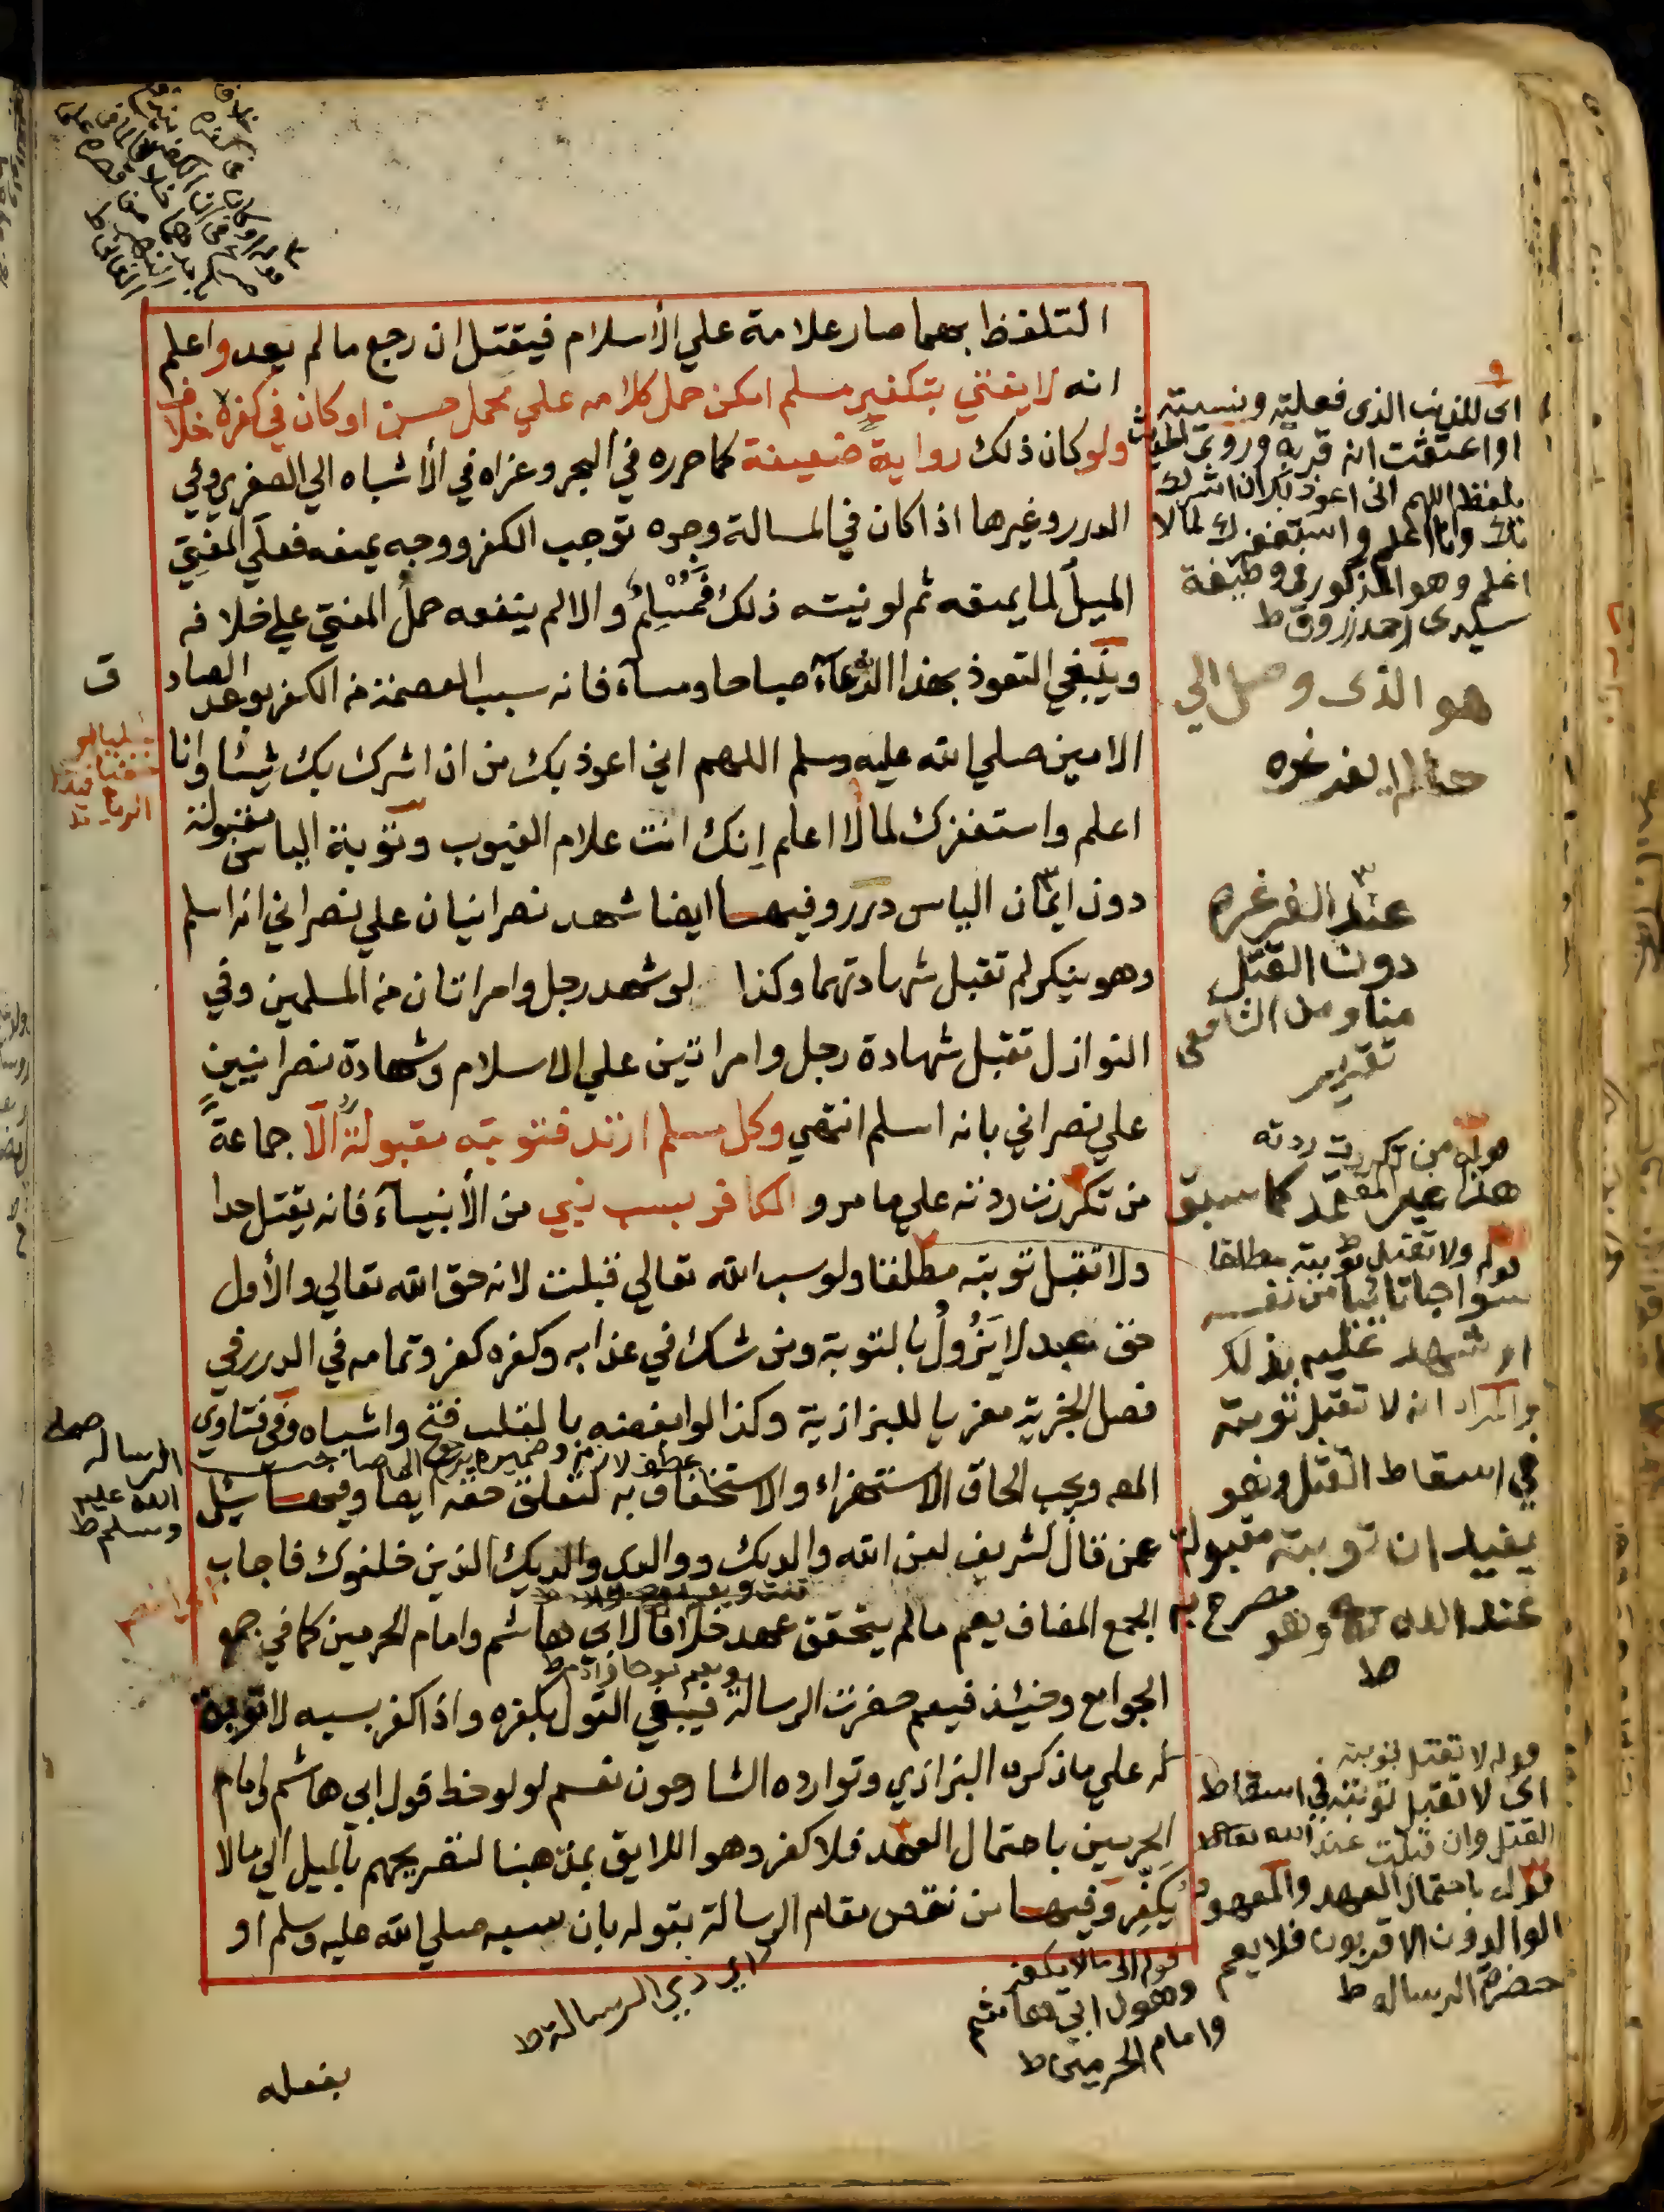 التلفظ بهما صار علامة علي الأسلام فيقتل ان رجع ما لم يعد واعلم
انه لا يفتي بتكفير مسلم امكن حمل كلامه علي محمل حسن او كان في كفره خلاف
ولو كان ذلك رواية ضعيفة كما حرره في البحر وعزاه في الأشباه الي الصغري وفي
الدرر وغيرها اذا كان في المسالة وجوه توجب الكفر ووجه يمنعه فعلي المفتي
الميل لما يمنعه ثم لو نيته ذلك فمسلم والا لم ينفعه حمل المفتي علي خلافه
وينبغي التعوذ بهذا الدعآء صباحا ومسآء فانه سبب العصمة من الكفر بوعد الصادق
الامين صلي الله عليه وسلم اللهم اني اعوذ بك من ان اشرك بك شيئا وانا
اعلم واستغفرك لما لا اعلم إنك انت علام الغيوب وتوبة الياس مقبولة
دون ايمان الياس درر وفيها ايضا شهد نصرانيان علي نصراني انه اسلم
وهو ينكر لم تقبل شهادتهما وكذا لو شهد رجل وامراتان من المسلمين وفي
النوازل تقبل شهادة رجل وامراتين علي الاسلام وشهادة نصرانيين
علي نصراني بانه اسلم انتهي وكل مسلم ارتد فتوبته مقبولة الا جماعة
من تكررت ردته علي ما مر و الكافر بسب نبي من الأنبيآء فانه يقتل حدا
ولا تقبل توبته مطلقا ولو سب الله تعالي قبلت لانه حق الله تعالي والأول
حق عبد لا يزول بالتوبة ومن شك في عذابه وكفره كفر وتمامه في الدرر في
فصل الجزية معزيا للبزازية وكذا لو ابغضه بالقلب فتح واشباه وفي فتاوي
المص ويجب الحاق الاستهزاء والاستخفاف به لتعلق حقه ايضا وفيها سئل
عمن قال لشريف لعن الله والديك ووالدي والديك الذين خلفوك فاجاب
الجمع المضاف يعم ما لم يتحقق عهد خلافا لابي هاشم وامام الحرمين كما في جمع
الجوامع وحينئذ فيعم حضرت الرسالة فينبغي القول بكفره واذا كفر بسبه لا توبة
له علي ما ذكره البزازي وتوارده الشارحون نعم لو لوحظ قول ابي هاشم وامام
الحرمين باحتمال العهد فلا كفر وهو اللايق بمذهبنا لتصريحهم بالميل الي ما لا
يكفر وفيها من نقص مقام الرسالة بقوله بان سبه صلي الله عليه وسلم او
بفعله
اي للذنب الذي فعلته ونسيته
او اعتقدت انه قربة وروي الحديث
بلفظ اللهم اني اعوذ بك ان اشرك
بك وانا اعلم واستغفرك لما لا
اعلم وهو المذكور في وظيفة
سيدي احمد زروق ط
هو الذي وصل الي
حالة الغرغره
عند الغرغرة
دون القتل
تقرير
قوله من تكررت ردته
هذا غير المعتمد كما سبق
قوله ولا تقبل توبته مطلقا
سوا جا تائبا من نفسه
او شهد عليه بذلك
والمراد انه لا تقبل توبته
في اسقاط القتل وهو
يفيد ان توبته مقبولة
عند الله وهو مصرح به
ط
قوله لا تقبل توبته
اي لا تقبل توبته في اسقاط
القتل وان قبلت عند الله تعالى
قوله باحتمال العهد والمعهود
الوالدون الاقربون فلا يعم
حضرة الرسالة ط
قوله الي ما لا يكفر
وهو قول ابي هاشم
وامام الحرمين ط
اي ذي الرسالة ط
عطف لازم وضميره يرجع الي صاحب
الرسالة صلى
الله عليه
وسلم ط